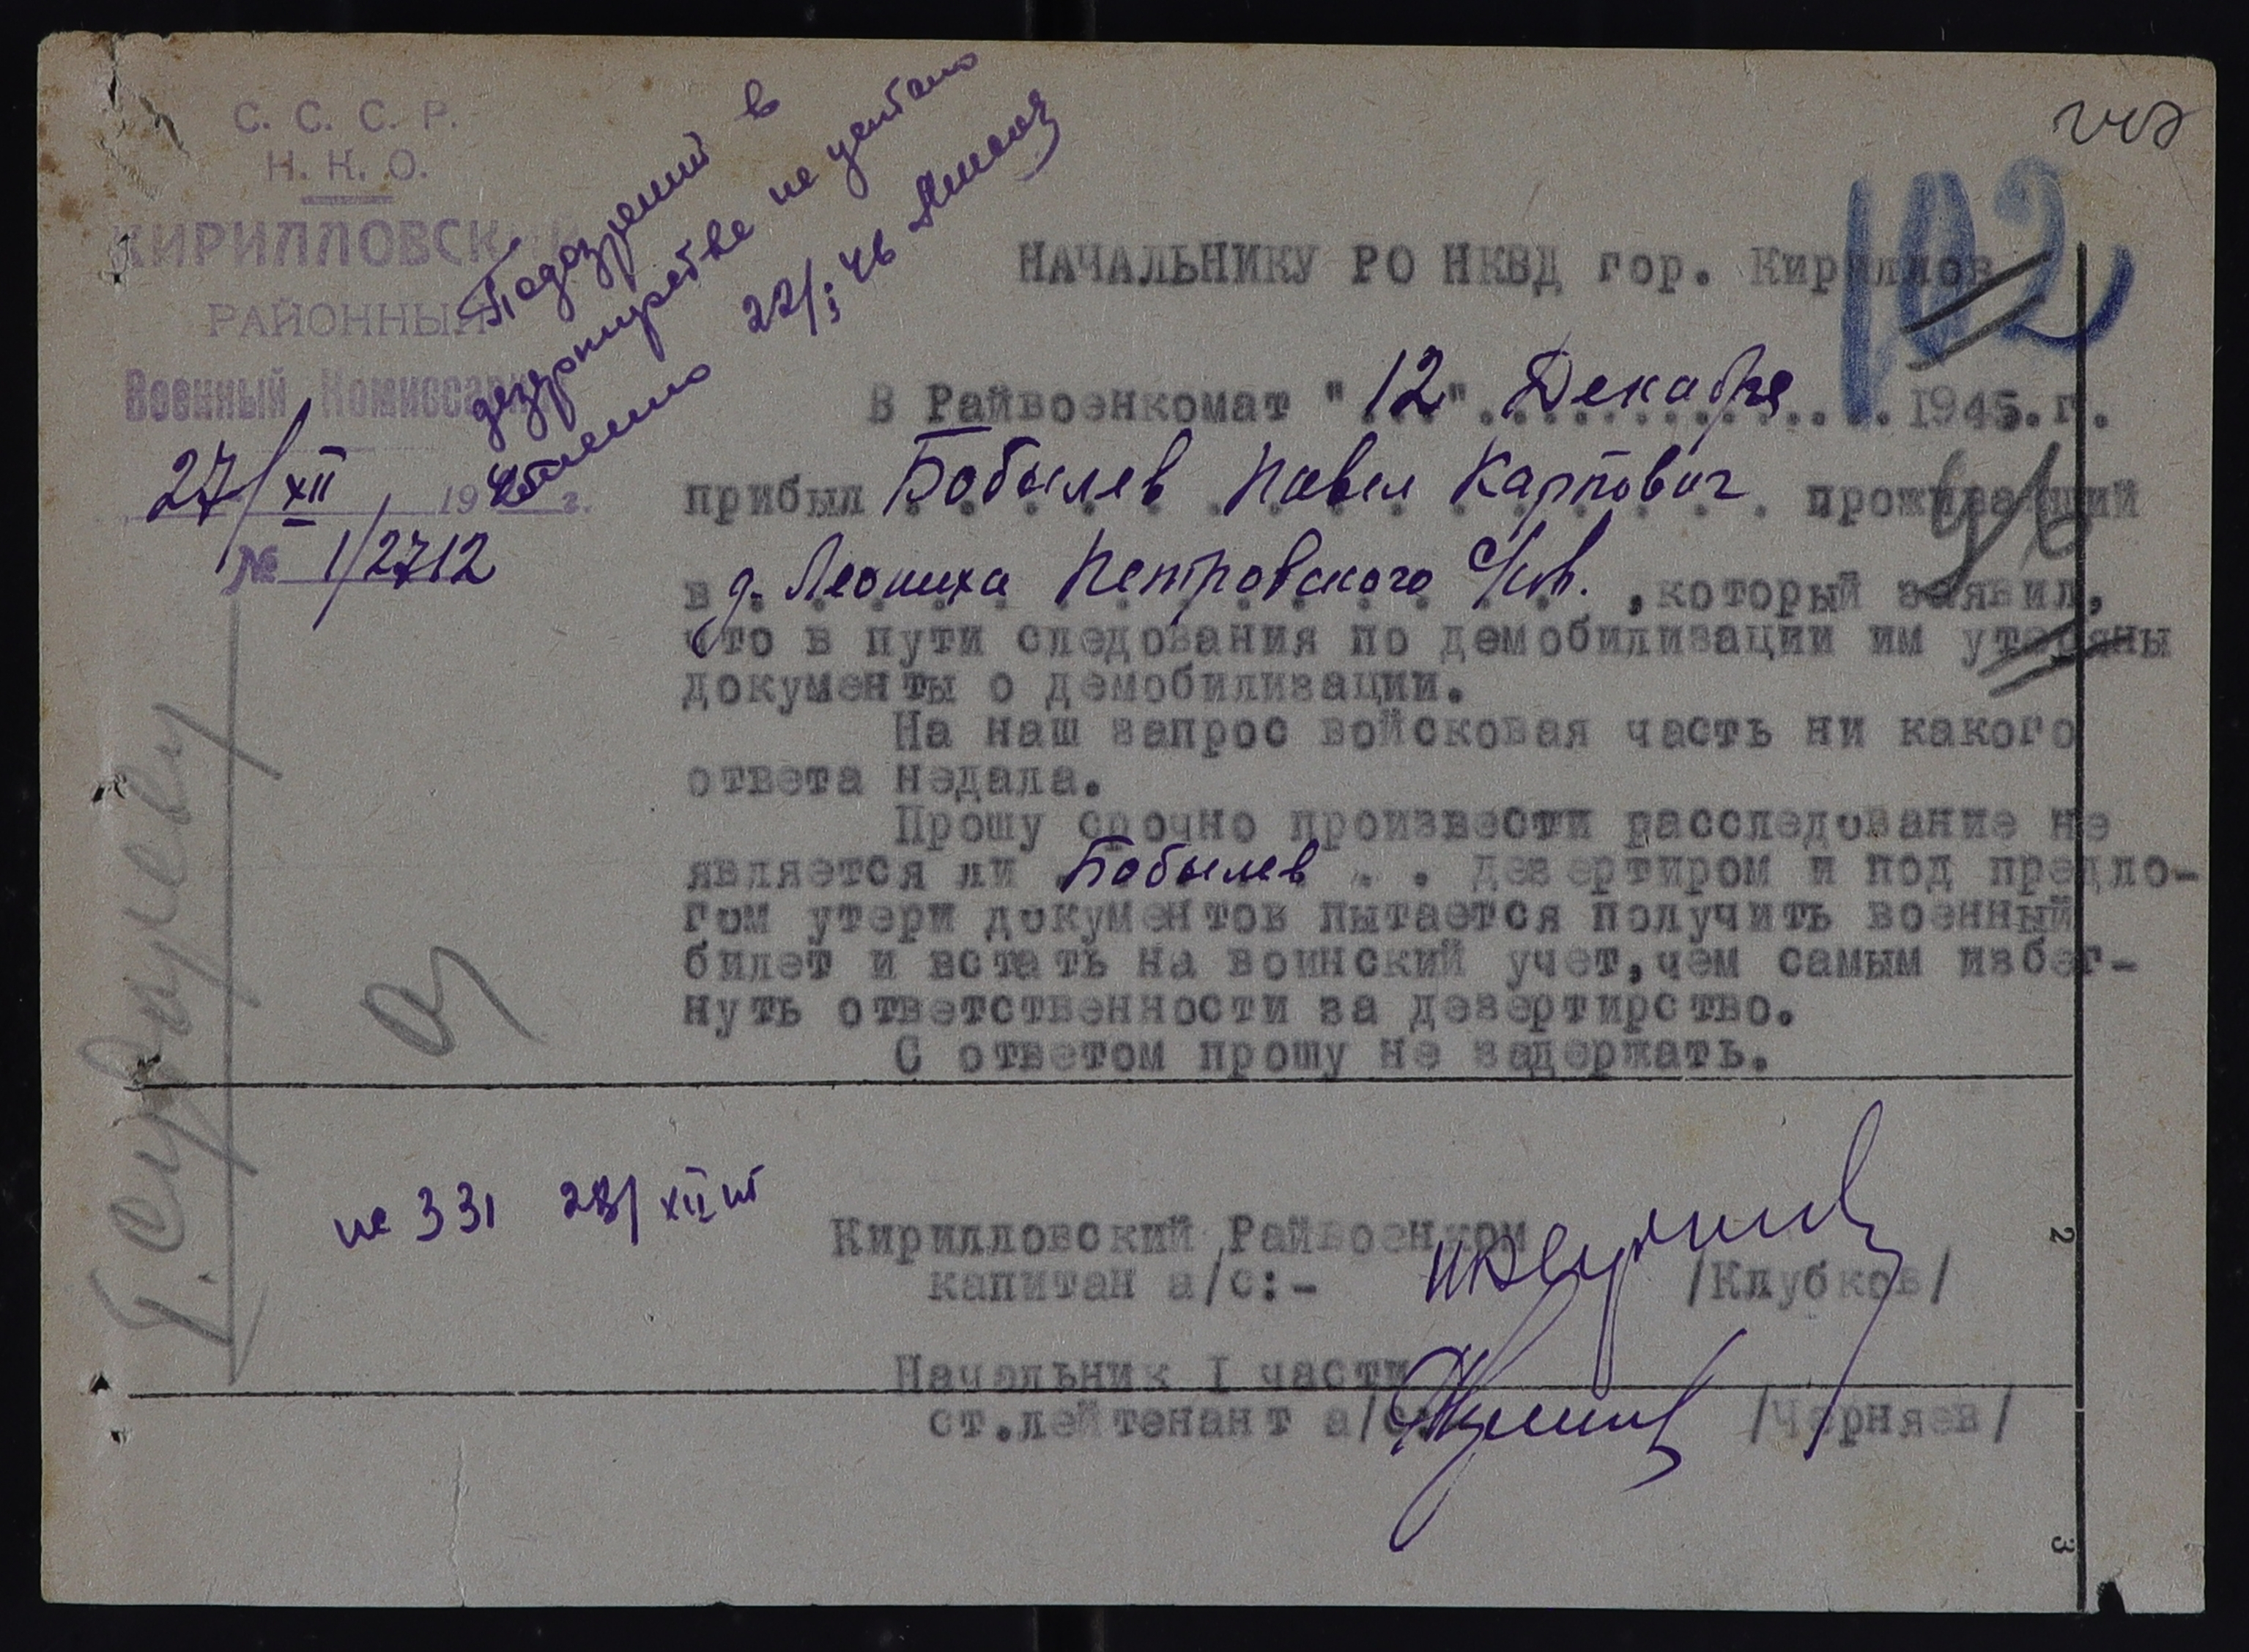 С. С. С. Р.
Н. К. О.
КИРИЛЛОВСКИЙ
РАЙОННЫЙ
Военный Комиссариат
27/XII 1945 г.
№ 1/2712
Подозрений в
дезертирстве не
22/I 46
102
НАЧАЛЬНИКУ РО НКВД гор. Кириллов
В Райвоенкомат "12" Декабря 1945.г.
прибыл Бобылев Павел Карпович проживающий
в д. Леониха Петровского с/сов. ,который заявил,
что в пути следования по демобилизации им утеряны
документы о демобилизации.
На наш запрос войсковая часть ни какого
ответа недала.
Прошу срочно произвести расследование не
является ли Бобылев . . дезертиром и под предло-
гом утери документов пытается получить военный
билет и встать на воинский учет,чем самым избег-
нуть ответственности за дезертирство.
С ответом прошу не задержать.
331 28/XII
Кирилловский Райвоенком
капитан а/с:- /Клубков/
Начальник I части
ст.лейтенант а/с: /Черняев/
2
3